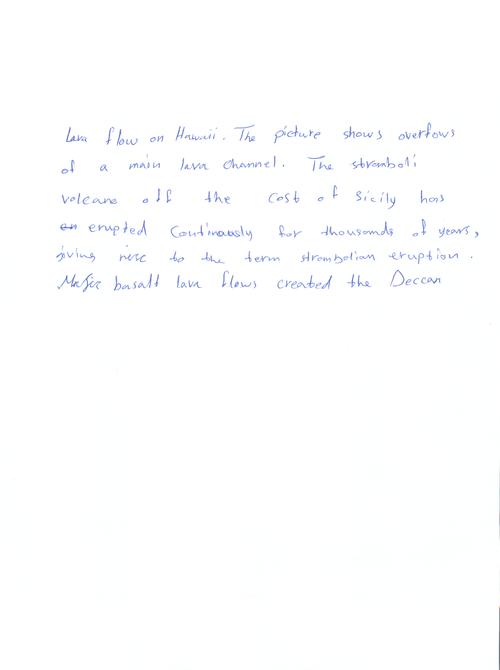 lava flow on Hawaii. The picture shows overfows
of a main lava channel. The stromboli
volcano off the cost of Sicily has
erupted continously for thousands of years,
giving rise to the term strombolian eruption.
Mafic basalt lava flows created the Deccan